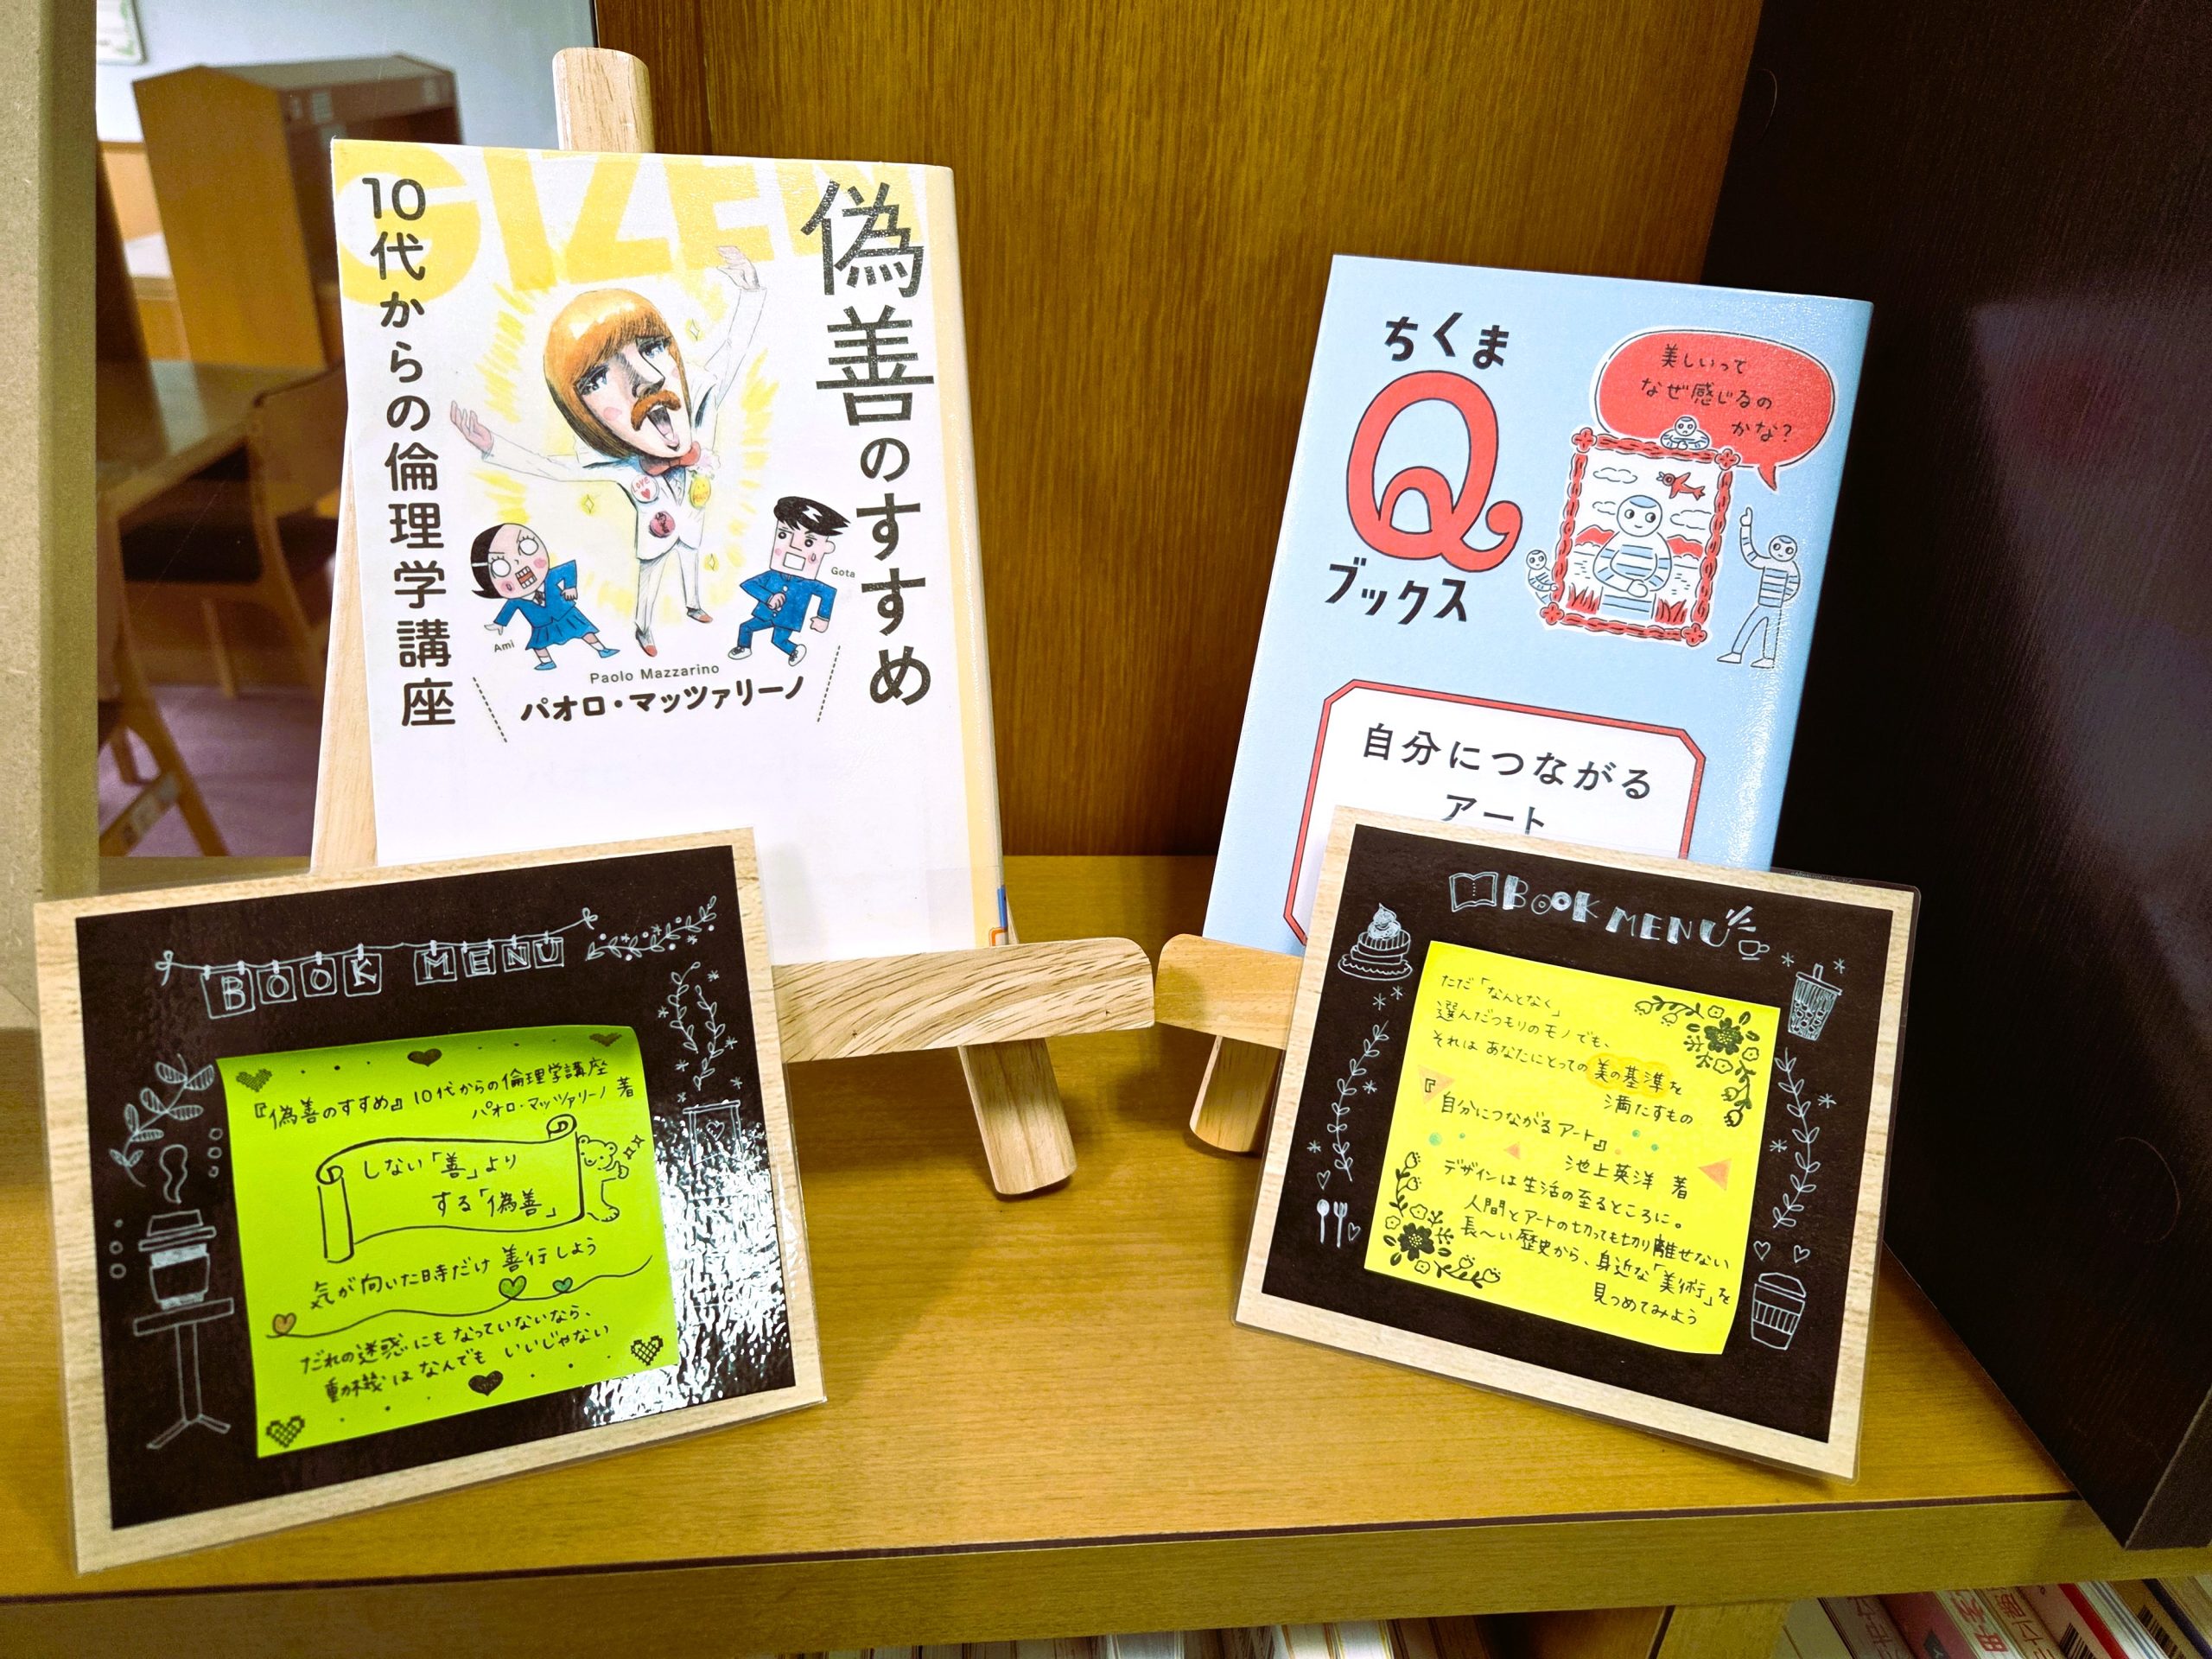 GIZEN
偽善のすすめ
10代からの倫理学講座
Ami
Gota
Paolo Mazzarino
パオロ・マッツァリーノ
ちくま
Q
ブックス
美しいって
なぜ感じるの
かな？
自分につながる
アート
BOOK MENU
『偽善のすすめ』10代からの倫理学講座
パオロ・マッツァリーノ 著
しない「善」より
する「偽善」
気が向いた時だけ 善行しよう
だれの迷惑にもなっていないなら、
動機はなんでも いいじゃない
BOOK MENU
ただ「なんとなく」
選んだつもりのモノでも、
それは あなたにとっての美の基準を
満たすもの
『自分につながるアート』
池上英洋 著
デザインは生活の至るところに。
人間とアートの切っても切り離せない
長〜い歴史から、身近な「美術」を
見つめてみよう